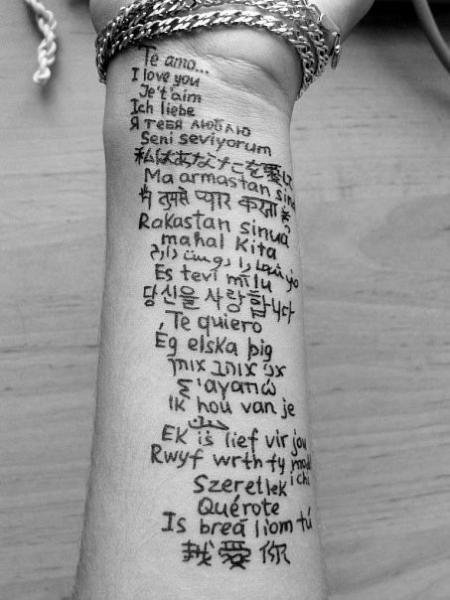 Te amo...
I love you
Je't'aim
Ich liebe
Я ТЕБЯ ЛЮБЛЮ
Seni seviyorum
私はあなたを愛して
Ma armastan sind
तुमसे प्यार करता
Rakastan sinua
mahal Kita
دوست دارم
Es tevi mīlu
당신을 사랑합니다
Te quiero
Ég elska þig
אני אוהב אותך
Σ'αγαπώ
Ik hou van je
Ek is lief vir jou
Rwyf wrth fy modd
i chi
Szeretlek
Quérote
Is breá liom tú
我愛你